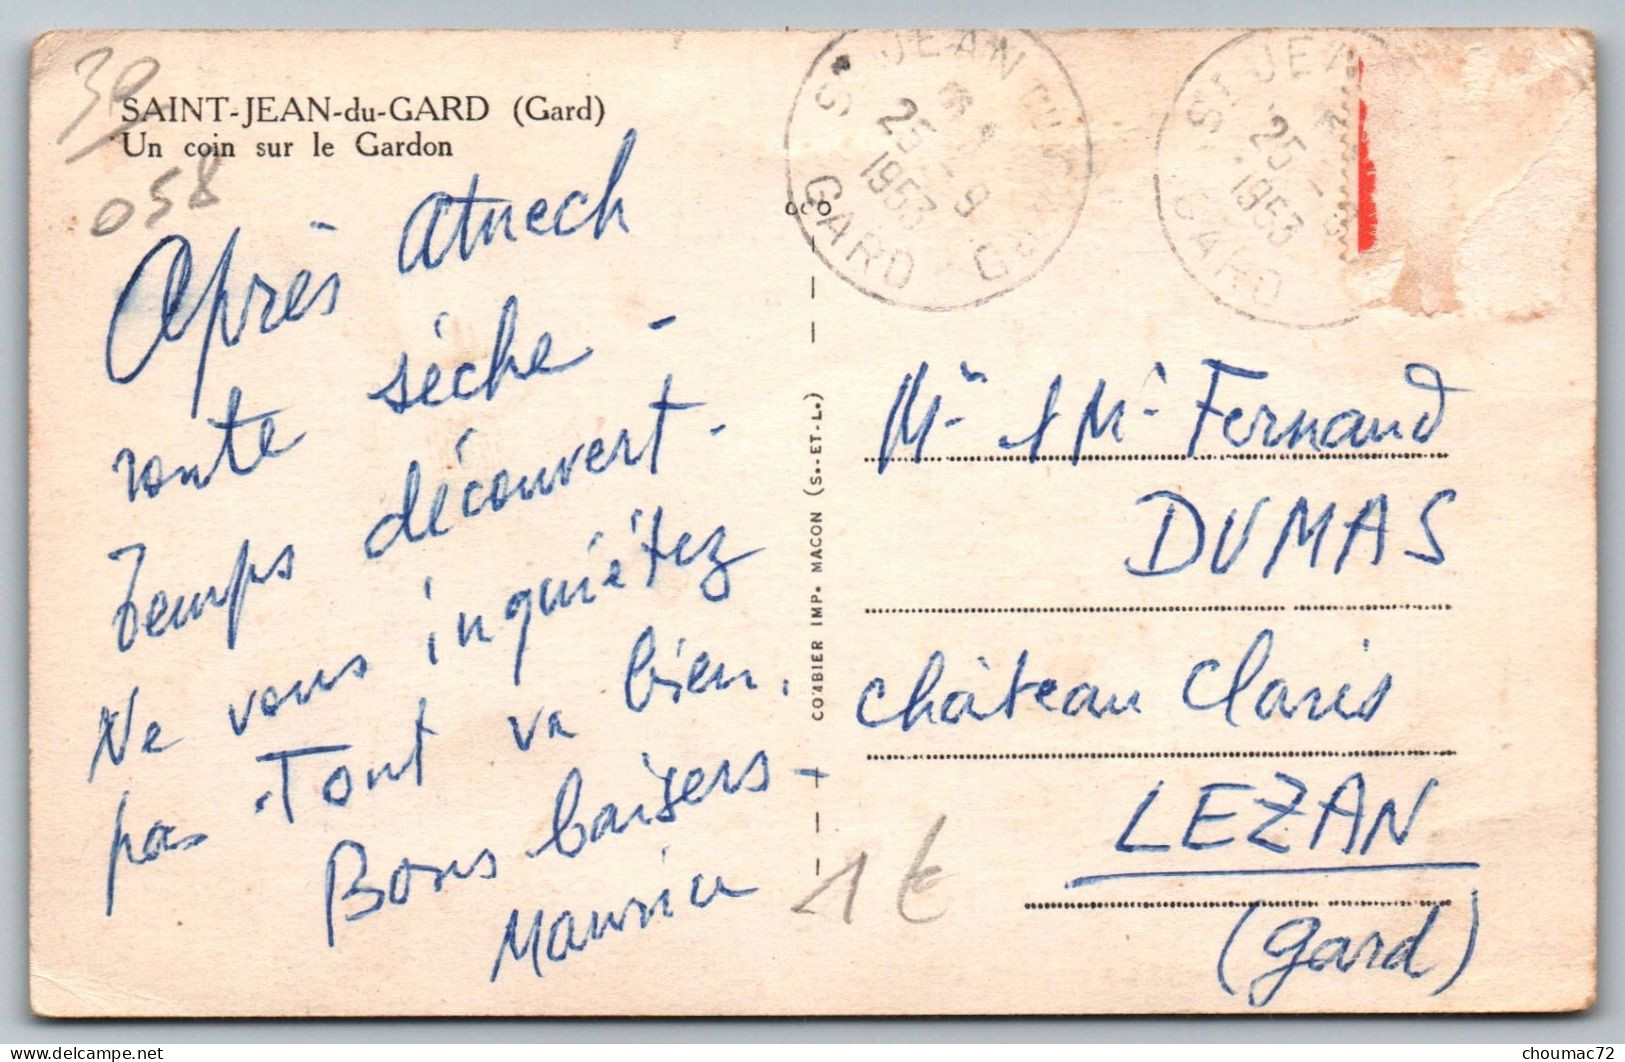 39
058
SAINT-JEAN-du-GARD (Gard)
Un coin sur le Gardon
Après
route sèche -
Temps découvert -
Ne vous inquiétez
pas - Tout va bien.
Bons baisers -
Maurice
COMBIER IMP. MACON (S.-ET-L.)
ST JEAN DU GARD
25 - 9
1953
GARD
ST JEA
25 -
1953
GARD
Mr et Me Fernand
DUMAS
Château Claris
LEZAN
(Gard)
1 €
choumac72